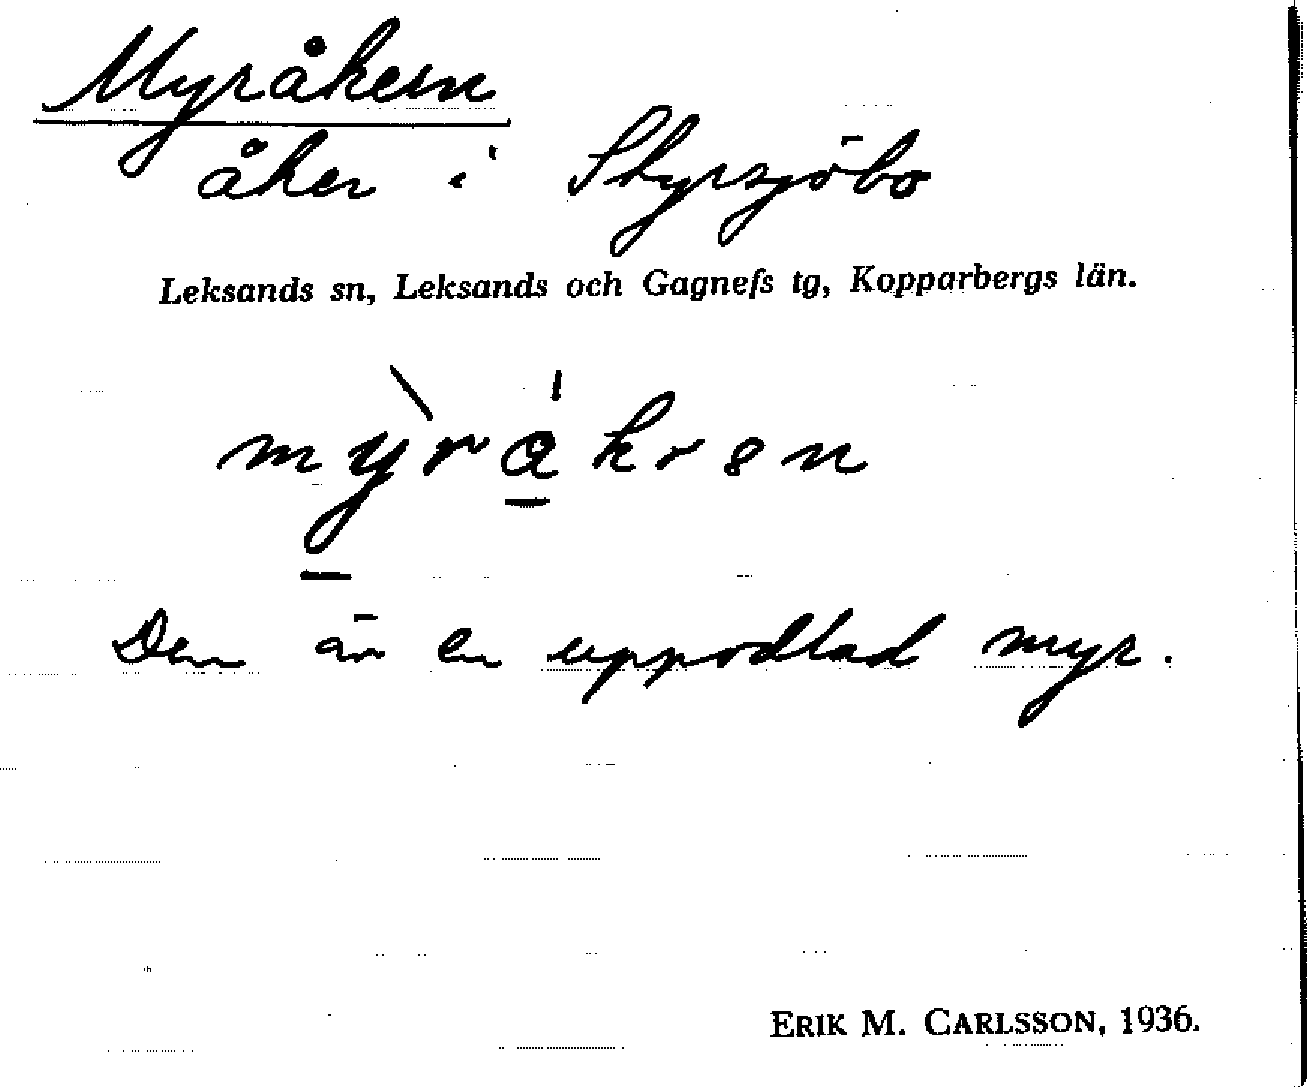 Myråkern
åker i Styrsjöbo
Leksands sn, Leksands och Gagnefs tg, Kopparbergs län.
myràkrən
Den är en uppodlad myr.
ERIK M. CARLSSON, 1936.